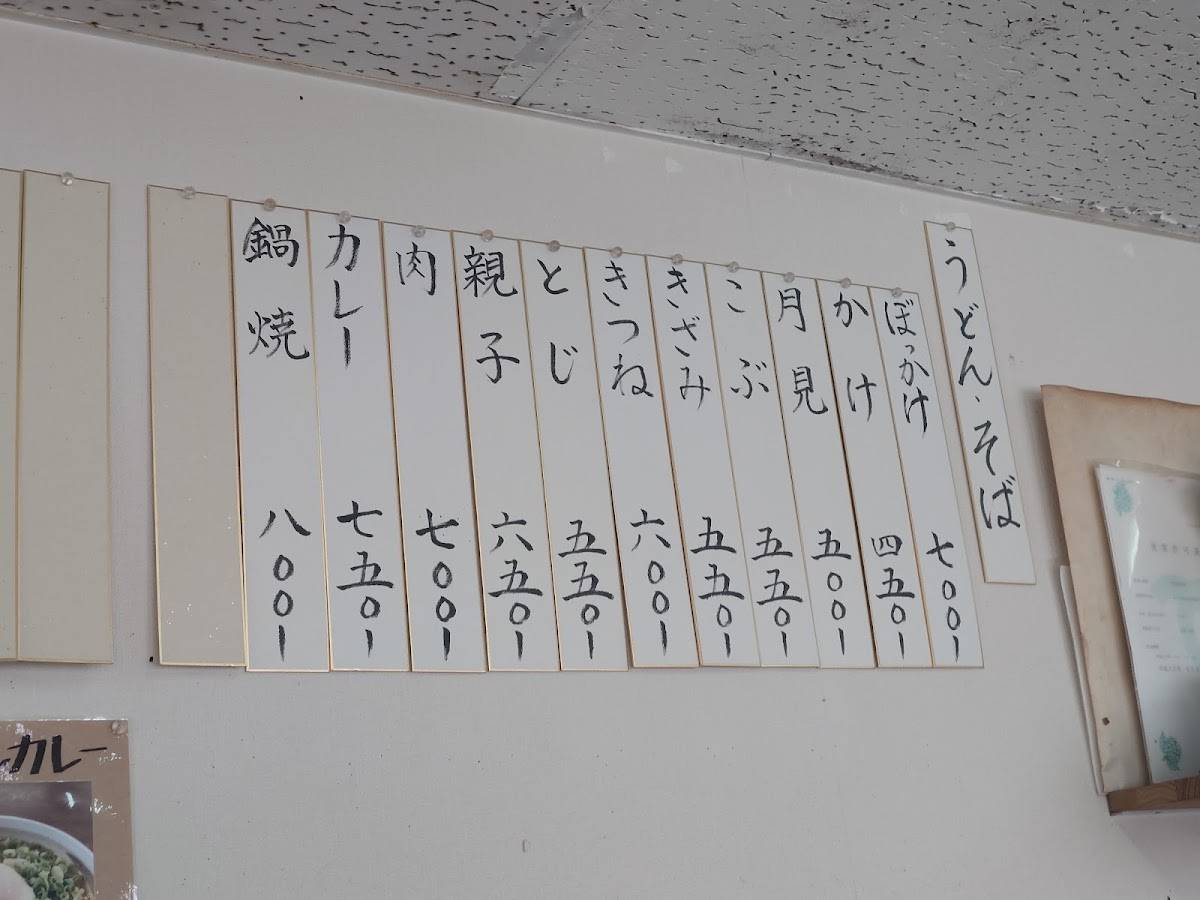 うどん、そば
ぼっかけ 七〇〇ー
かけ 四五〇ー
月見 五〇〇ー
こぶ 五五〇ー
きざみ 五五〇ー
きつね 六〇〇ー
とじ 五五〇ー
親子 六五〇ー
肉 七〇〇ー
カレー 七五〇ー
鍋焼 八〇〇ー
カレー